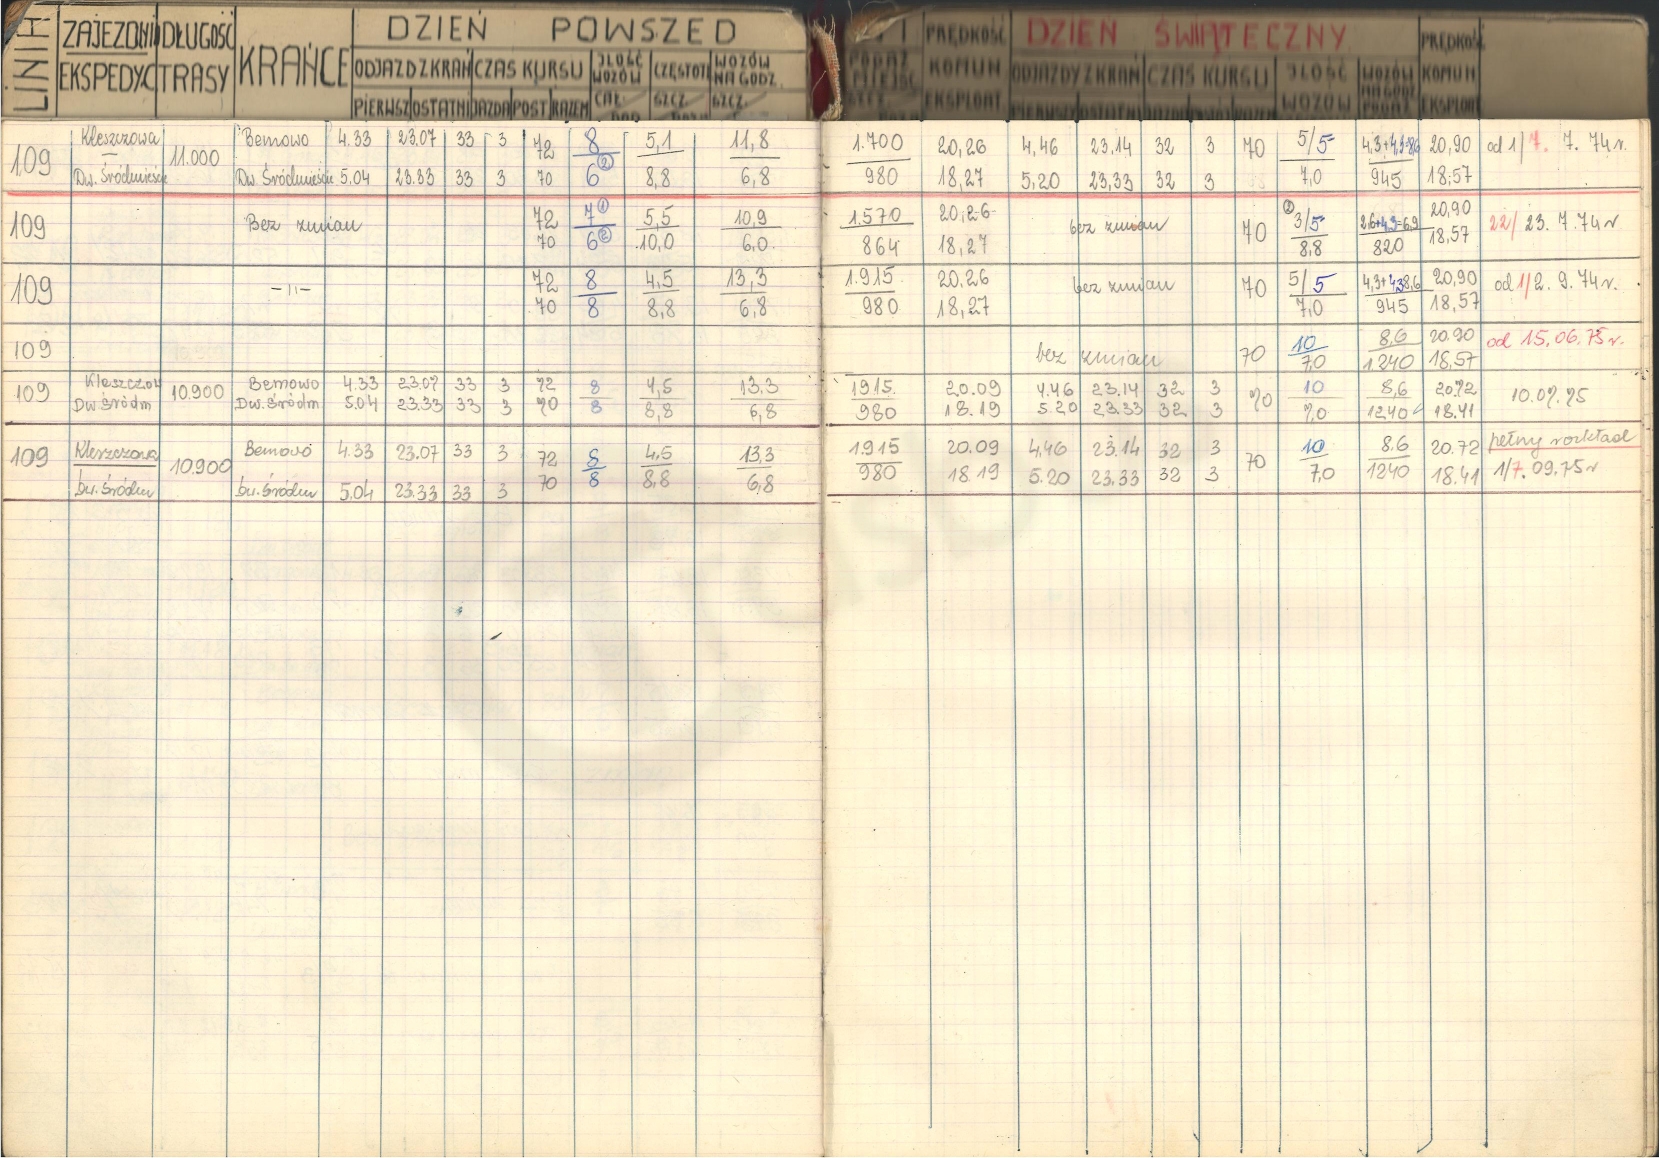 LINIA ZAJEZDNI DŁUGOŚĆ KRAŃCE DZIEŃ POWSZED PRĘDKOŚĆ DZIEŃ ŚWIĄTECZNY PRĘDKOŚ
EKSPEDYC TRASY ODJAZD Z KRAŃ CZAS KURSU ILOŚĆ WOZÓW CZĘSTOT WOZÓW NA GODZ. KOMUN ODJAZDY Z KRAŃ CZAS KURSU ILOŚĆ WOZÓW WOZÓW NA GODZ KOMUN
PIERWSZ OSTATNI JAZDA POST RAZEM CAŁ. SZCZ. SZCZ. EKSPLOAT. PIERWSZY OSTATNI EKSPLOAT
109 Kleszczowa 11.000 Bemowo 4.33 23.07 33 3 72 8 5,1 11,8 1.700 20,26 4,46 23,14 32 3 70 5/5 4,3+4,3=8,6 20,90 od 1/7. 7. 74r.
Dw. Śródmieście Dw. Śródmieście 5.04 23.33 33 3 70 6② 8,8 6,8 980 18,27 5,20 23,33 32 3 7,0 945 18,57
109 Bez zmian 72 7① 5,5 10,9 1.570 20,26 bez zmian 70 ② 3/5 2,6+4,3=6,9 20,90 22/23. 7. 74r
70 6② 10,0 6,0 864 18,27 8,8 820 18,57
109 -"- 72 8 4,5 13,3 1.915 20,26 bez zmian 70 5/5 4,3+4,3 8,6 20,90 od 1/2. 9. 74r.
70 8 8,8 6,8 980 18,27 7,0 945 18,57
109 bez zmian 70 10 8,6 20.90 od 15.06.75r.
7,0 1240 18.57
109 Kleszczow 10.900 Bemowo 4.33 23.07 33 3 72 8 4,5 13.3 1915 20.09 4.46 23.14 32 3 70 10 8,6 20.72 10.07.75
Dw. Śródm Dw. Śródm. 5.04 23.33 33 3 70 8 8,8 6,8 980 18.19 5.20 23.33 32 3 7,0 1240 18.41
109 Kleszczowa 10.900 Bemowo 4.33 23.07 33 3 72 8 4,5 13,3 1915 20.09 4,46 23.14 32 3 70 10 8.6 20.72 pełny rozkład
Dw. Śródm Dw. Śródm 5.04 23.33 33 3 70 8 8,8 6,8 980 18.19 5.20 23.33 32 3 7,0 1240 18.41 1/7. 09.75r